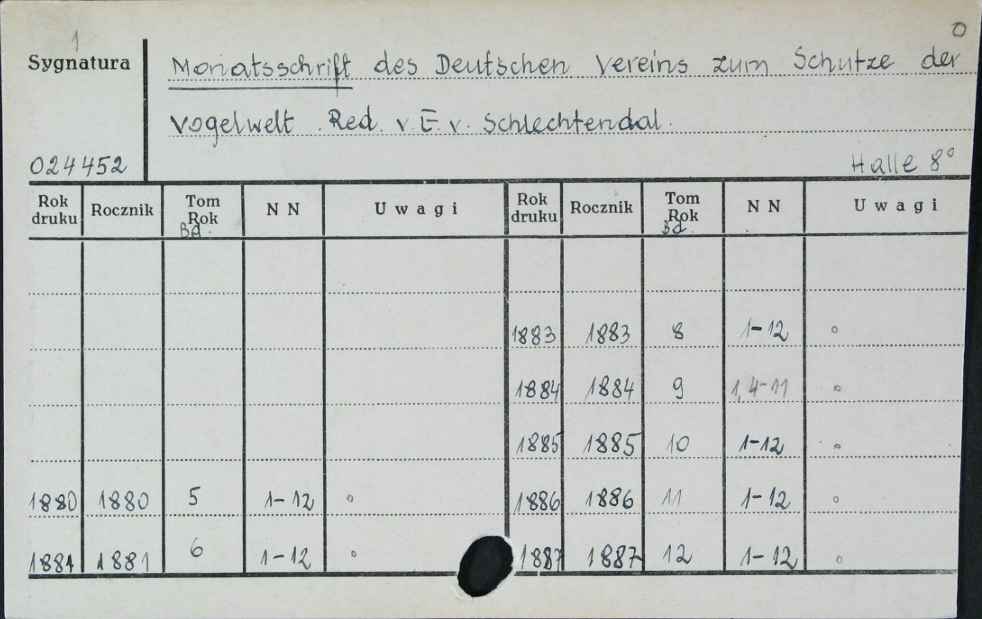 1
0
Sygnatura
Monatsschrift des Deutschen Vereins zum Schutze der
Vogelwelt. Red. v. E. v. Schlechtendal.
024452
Halle 8°
Rok druku Rocznik Tom Rok Bd. N N Uwagi Rok druku Rocznik Tom Rok Bd. N N Uwagi
1883 1883 8 1-12 °
1884 1884 9 1,4-11 °
1885 1885 10 1-12 °
1880 1880 5 1-12 ° 1886 1886 11 1-12 °
1881 1881 6 1-12 ° 1887 1887 12 1-12 °